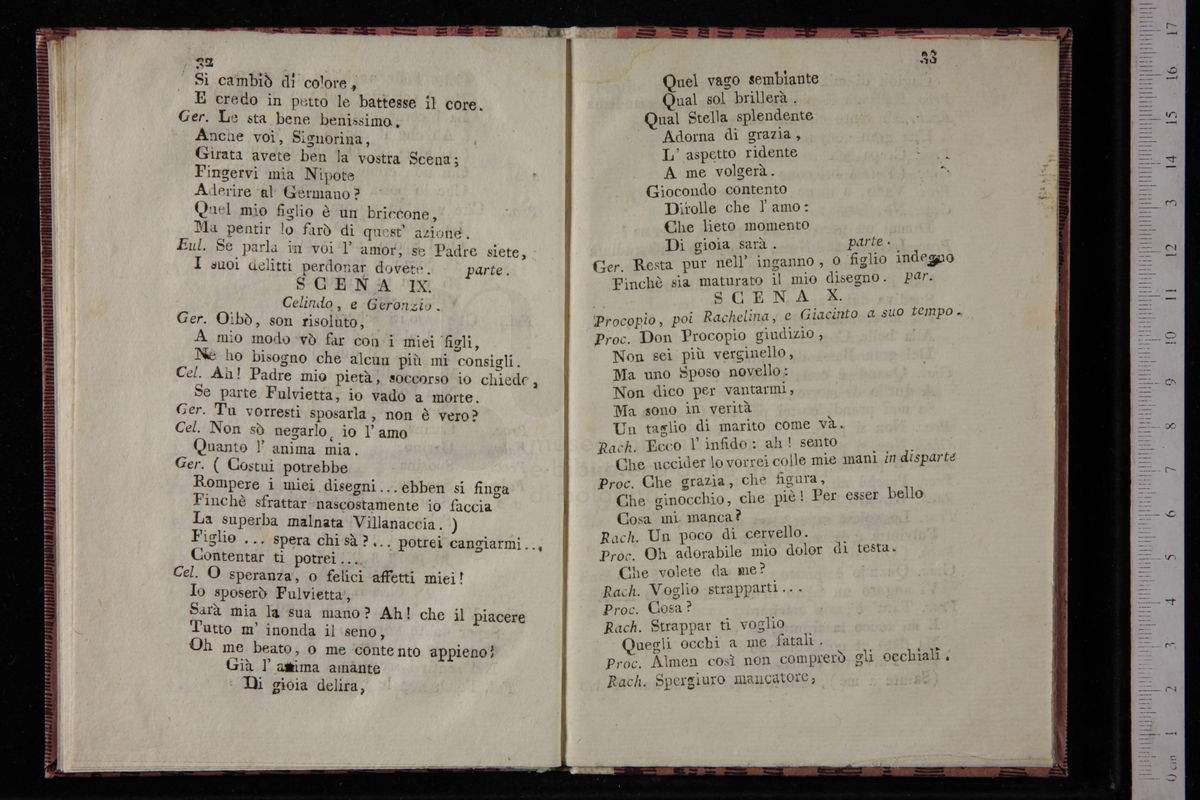 32
Si cambiò di colore,
E credo in petto le battesse il core.
Ger. Le sta bene benissimo.
Anche voi, Signorina,
Girata avete ben la vostra Scena;
Fingervi mia Nipote
Aderire al Germano?
Quel mio figlio è un briccone,
Ma pentir lo farò di quest' azione.
Eul. Se parla in voi l' amor, se Padre siete,
I suoi delitti perdonar dovete. parte.
SCENA IX.
Celindo, e Geronzio.
Ger. Oibò, son risoluto,
A mio modo vò far con i miei figli,
Nè ho bisogno che alcun più mi consigli.
Cel. Ah! Padre mio pietà, soccorso io chiedo,
Se parte Fulvietta, io vado a morte.
Ger. Tu vorresti sposarla, non è vero?
Cel. Non sò negarlo, io l' amo
Quanto l' anima mia.
Ger. ( Costui potrebbe
Rompere i miei disegni... ebben si finga
Finchè sfrattar nascostamente io faccia
La superba malnata Villanaccia. )
Figlio ... spera chi sà?... potrei cangiarmi...
Contentar ti potrei...
Cel. O speranza, o felici affetti miei!
Io sposerò Fulvietta,
Sarà mia la sua mano? Ah! che il piacere
Tutto m' inonda il seno,
Oh me beato, o me contento appieno!
Già l' anima amante
Di gioia delira,
33
Quel vago sembiante
Qual sol brillerà.
Qual Stella splendente
Adorna di grazia,
L' aspetto ridente
A me volgerà.
Giocondo contento
Dirolle che l' amo:
Che lieto momento
Di gioia sarà. parte.
Ger. Resta pur nell' inganno, o figlio indegno
Finchè sia maturato il mio disegno. par.
SCENA X.
Procopio, poi Rachelina, e Giacinto a suo tempo.
Proc. Don Procopio giudizio,
Non sei più verginello,
Ma uno Sposo novello:
Non dico per vantarmi,
Ma sono in verità
Un taglio di marito come và.
Rach. Ecco l' infido: ah! sento
Che uccider lo vorrei colle mie mani in disparte
Proc. Che grazia, che figura,
Che ginocchio, che piè! Per esser bello
Cosa mi manca?
Rach. Un poco di cervello.
Proc. Oh adorabile mio dolor di testa.
Che volete da me?
Rach. Voglio strapparti...
Proc. Cosa?
Rach. Strappar ti voglio
Quegli occhi a me fatali.
Proc. Almen così non comprerò gli occhiali.
Rach. Spergiuro mancatore,
0 cm 1 2 3 4 5 6 7 8 9 10 11 12 13 14 15 16 17